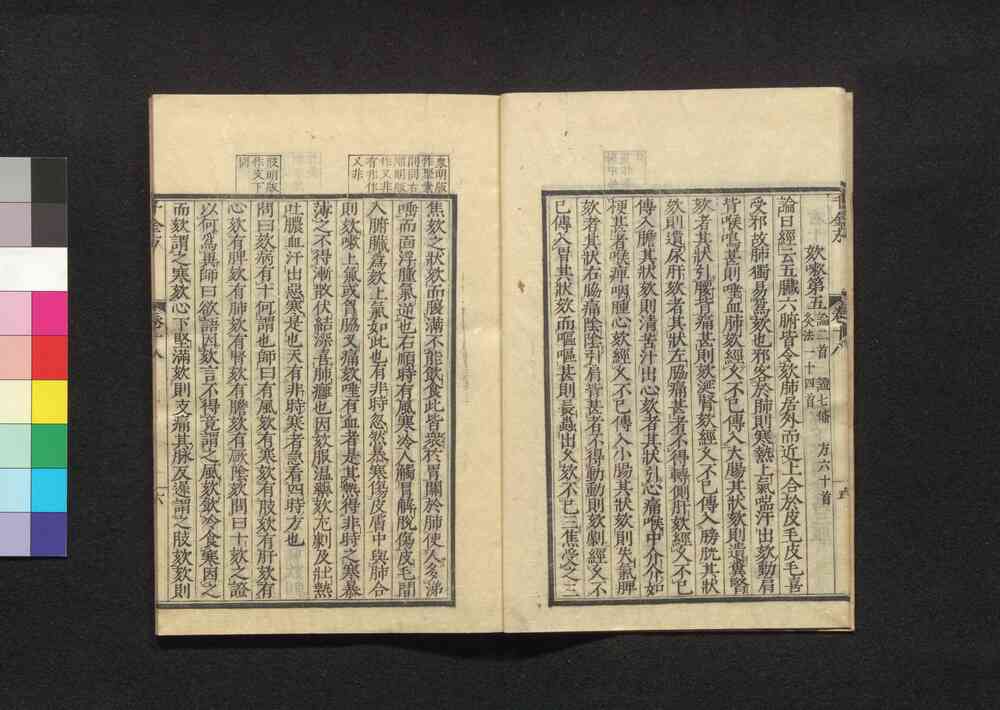 欬嗽第五 論二首 證七條 方六十首 灸法一十四首
論曰經云五臟六腑皆令欬肺居外而近上合於皮毛皮毛喜
受邪故肺獨易爲欬也邪客於肺則寒熱上氣喘汗出欬動肩
背喉鳴甚則唾血肺欬經久不已傳入大腸其狀欬則遺糞腎
欬者其狀引腰背痛甚則欬涎腎欬經久不已傳入膀胱其狀
欬則遺尿肝欬者其狀左脇痛甚者不得轉側肝欬經久不已
傳入膽其狀欬則清苦汁出心欬者其狀引心痛喉中介介如
梗甚者喉痺咽腫心欬經久不已傳入小腸其狀欬則失氣脾
欬者其狀右脇痛陰陰引肩背甚者不得動動則欬劇經久不
已傳入胃其狀欬而嘔嘔甚則長蟲出久欬不已三焦受之三
焦欬之狀欬而腹滿不能飲食此皆聚於胃關於肺使人多涕
唾而面浮腫氣逆也右順時有風寒冷人觸冒解脫傷皮毛間
入腑臟爲欬上氣如此也有非時忽然暴寒傷皮膚中與肺合
則欬嗽上氣或胷脇叉痛欬唾有血者是其熱得非時之寒暴
薄之不得漸散伏結深喜肺癰也因欬服溫藥欬尤劇及壯熱
吐膿血汗出惡寒是也天有非時寒者急看四時方也
問曰欬病有十何謂也師曰有風欬有寒欬有肢欬有肝欬有
心欬有脾欬有肺欬有腎欬有膽欬有厥陰欬問曰十欬之證
以何爲異師曰欲語因欬言不得竟謂之風欬飲冷食寒因之
而欬謂之寒欬心下堅滿欬則支痛其脉反遲謂之肢欬欬則
千金方
六